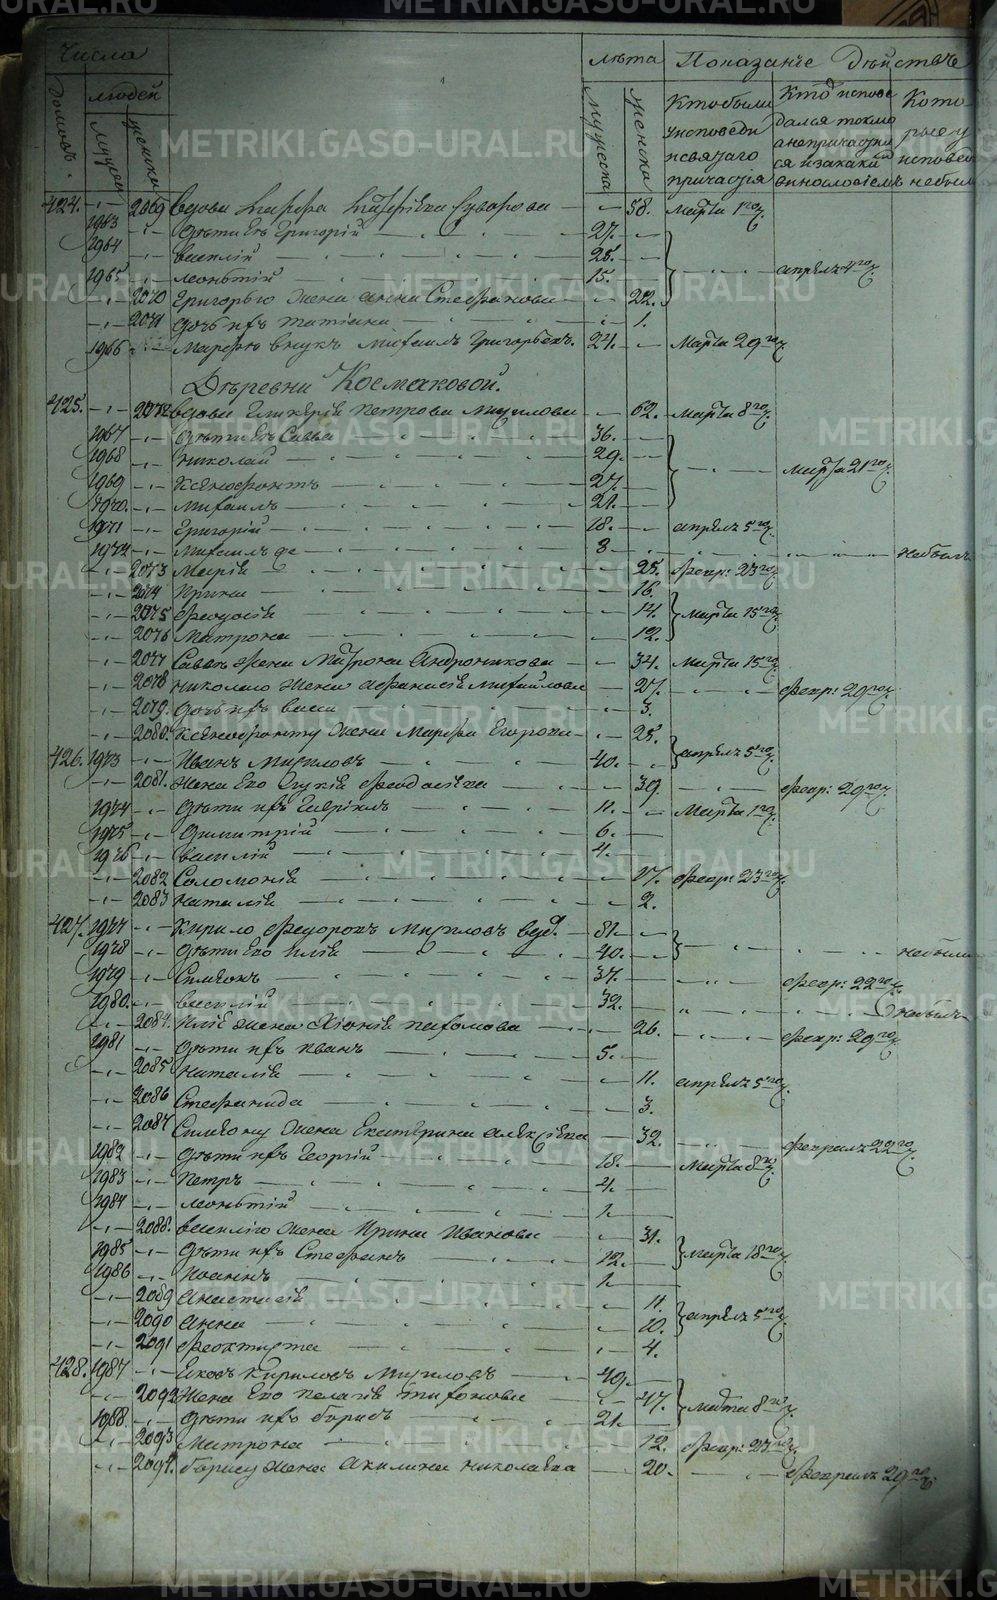 Числа
Лѣта
Показанiе Дѣйствъ
Домовъ.
людей
Мужеска
женска
Мужеск
женска
Кто были у исповеди и святаго причастiя
Кто исповедался токмо а не причастился и за каким винословiемъ
Которые у исповеди не были
424. 2069 вдова Суворова 58. Марта 1го ч.
1963 Дѣти Ея Григорiй 27.
1964 Василiй 25. апрѣля 4го ч.
1965 Леонтiй 15.
2070 Григорью Жена анна Стефанова 22.
2071 Дочь ихъ татiана 1.
1966 внукъ Михаилъ Григорьевъ. 24. Марта 29го ч.
Деревни Космаковой.
425. 2072 вдова Гликерiя Петрова 62. Марта 8го ч.
1967 Дѣти Ея Савва 36.
1968 Николай 29. марта 21го ч.
1969 Ксенофонтъ 27.
1970. Михаилъ 21.
1971 Григорiй 18. апрѣля 5го ч.
1972 Михаилъ же 8 не былъ
2073 Марiя 25. февр: 23го ч.
2074 Ирина 16.
2075 Феодосiя 14. Марта 15го ч.
2076 Матрона 12.
2077 Савве Жена Матрона Андроникова 34. Марта 15го ч.
2078 Николаю Жена афанасiя Михайлова 27. февр: 29го ч.
2079. Дочь ихъ 3.
2080. Ксенофонту Жена Марфа Егорова 25. апрѣля 5го ч.
426. 1973 Иванъ 40.
2081. Жена Его Феодосiева 39 февр: 29го ч.
1974 Дѣти ихъ Гаврiилъ 11. Марта 1го ч.
1975 Димитрiй 6.
1976 Василiй 4.
2082 Соломонiя 17. февр: 23го ч.
2083 Наталiя 2.
427. 1977 Кирило Федоровъ вдов. 81.
1978 Дѣти Его Илiя 40. не были
1979 Симеонъ 37. февр: 22го ч.
1980. Василiй 32. не былъ
2084. Илiе Жена Хiонiя 26. февр: 29го ч.
1981 Дѣти ихъ Иванъ 5.
2085 Наталiя 11. апрѣля 5го ч.
2086 Стефанида 3.
2087 Симеону Жена Екатерина алексѣева 32. февраля 22го ч.
1982 Дѣти ихъ Георгiй 18. Марта 8го ч.
1983 Петръ 4.
1984 Леонтiй 1.
2088. Василiю Жена Ирина Иванова 31.
1985 Дѣти ихъ Стефанъ 12. марта 18го ч.
1986 Иоаннъ 1.
2089 Анастасiя 11.
2090 Анна 10. апрѣля 5го ч.
2091 Феоктиста 4.
428. 1987 Яковъ Кириловъ 49.
2092 Жена Его Пелагiя тихонова 47. марта 8го ч.
1988. Дѣти ихъ Борисъ 21.
2093 Матрона 12. февр: 23го ч.
2094. Борису Жена Акилина Николаева 20. февраля 29го ч.
METRIKI.GASO-URAL.RU